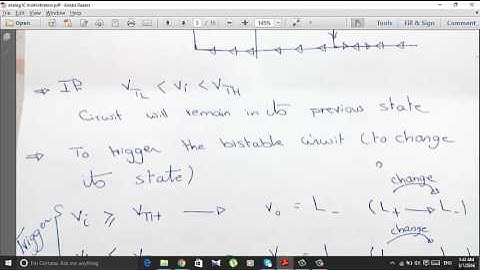 analog IC multivibrators.pdf - Adobe Reader
File Edit View Window Help
145%
Tools Fill & Sign Comment
⇒ IF V_TL < Vi < V_TH
Circuit will remain in its previous state
⇒ To trigger the bistable circuit (to change
its state)
change
Trigger { Vi ≥ V_TH → Vo = L_- (L_+ → L_-)
change
I'm Cortana. Ask me anything.
5:42 AM